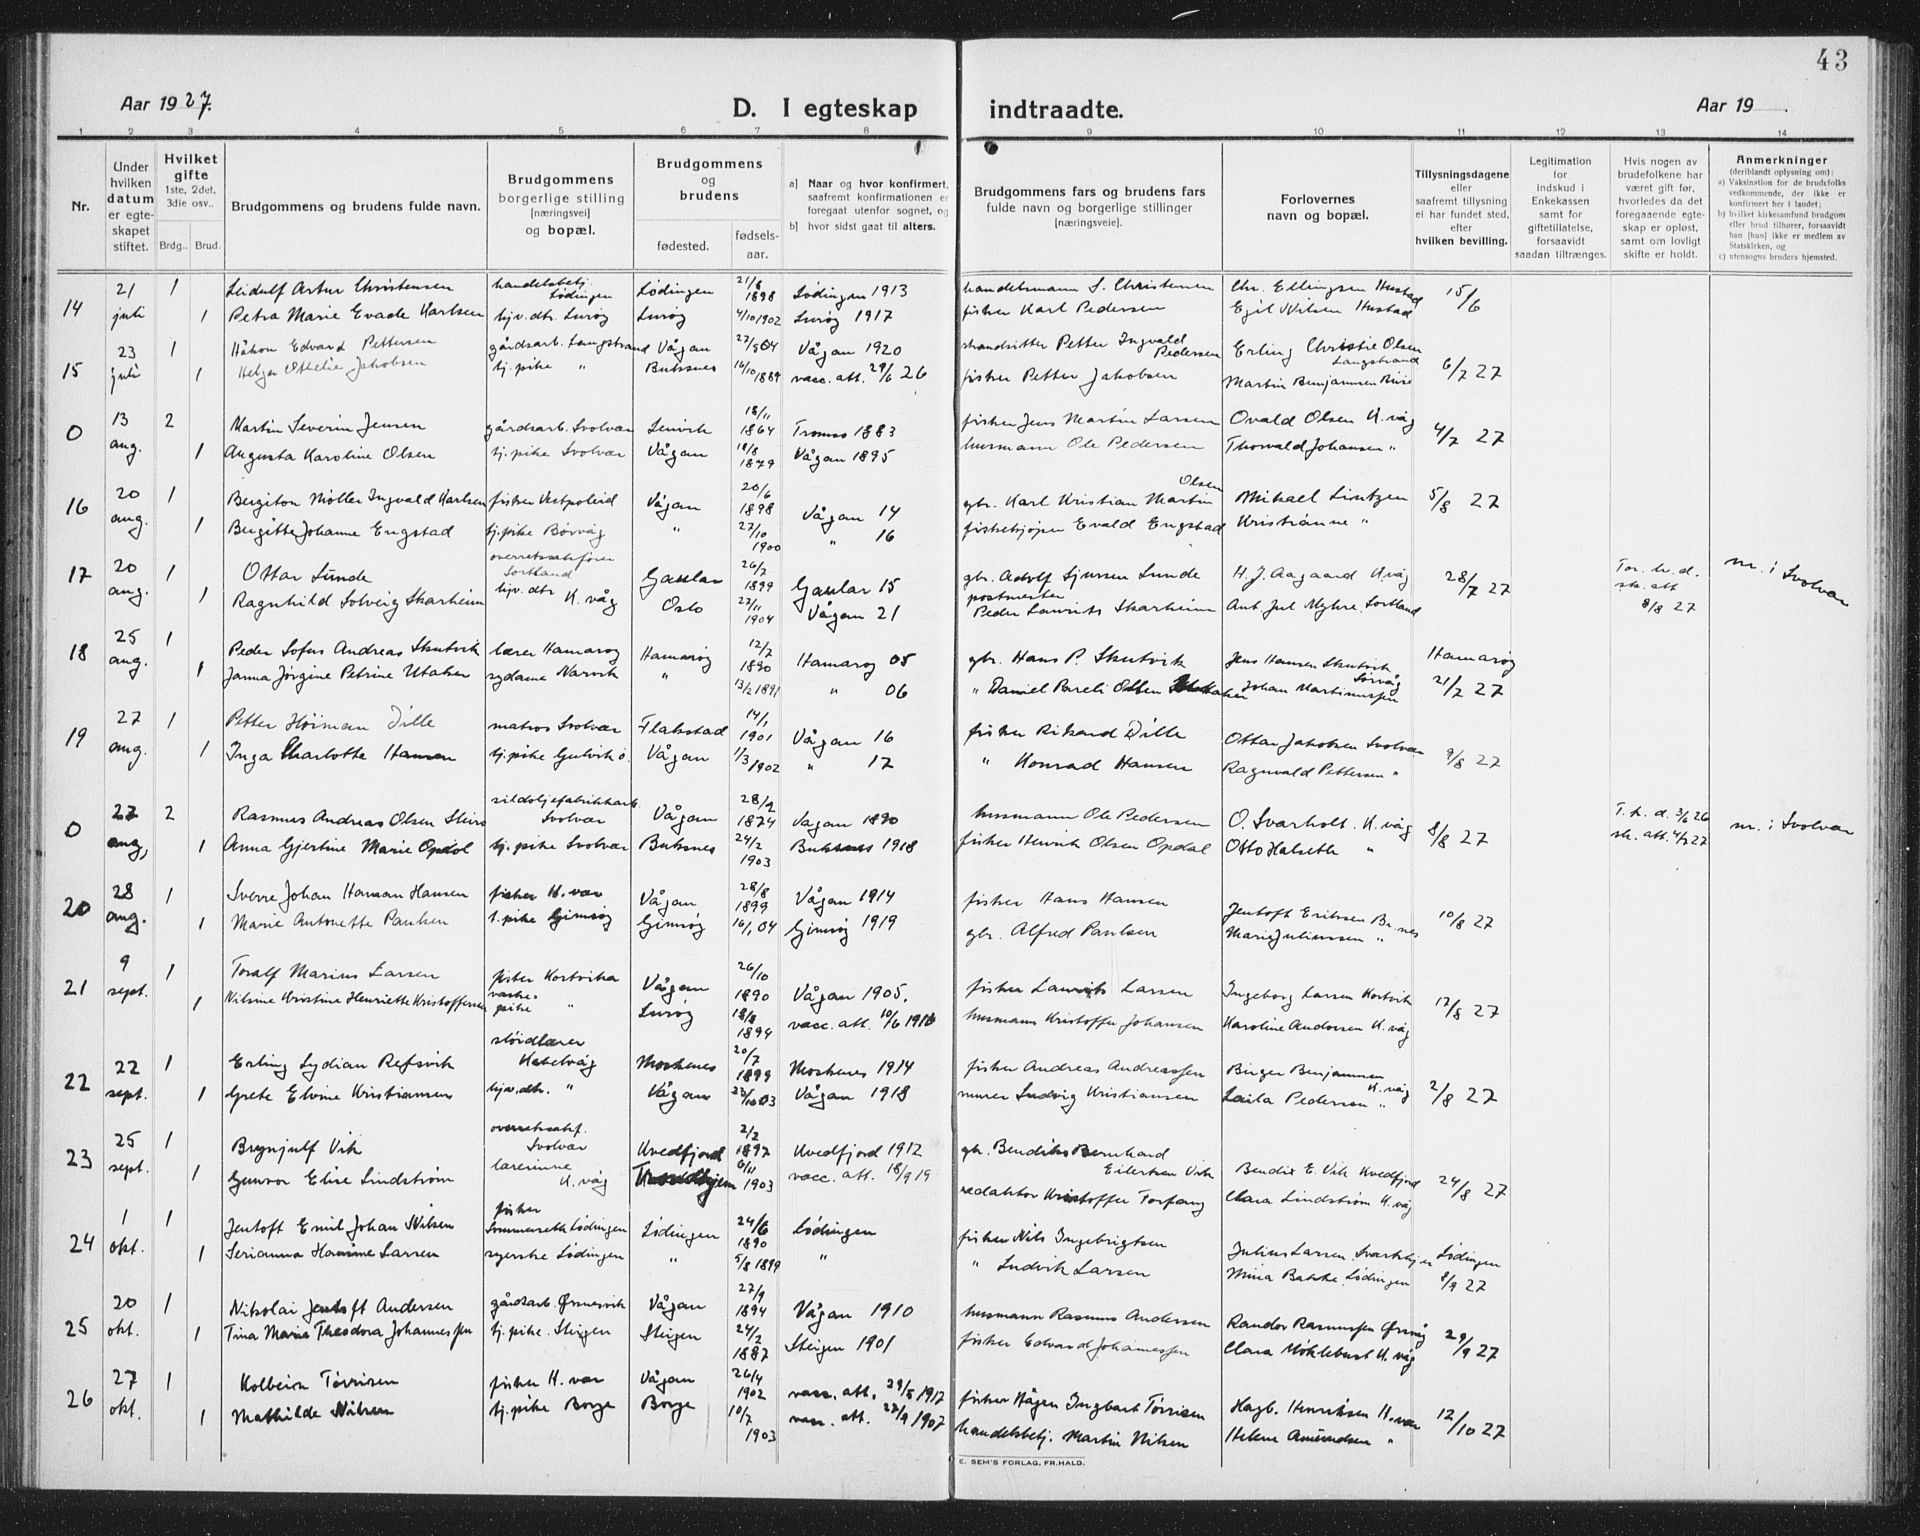 43
Aar 1927.
D. I egteskap
indtraadte.
Aar 19
1 2 3 4 5 6 7 8 9 10 11 12 13 14
Nr.
Under hvilken datum er egteskapet stiftet.
Hvilket gifte 1ste, 2det, 3die osv..
Brdg.. Brud.
Brudgommens og brudens fulde navn.
Brudgommens borgerlige stilling [næringsvei] og bopæl.
Brudgommens og brudens
fødested. fødselsaar.
a] Naar og hvor konfirmert, saafremt konfirmationen er foregaat utenfor sognet, og
b] hvor sidst gaat til alters.
Brudgommens fars og brudens fars fulde navn og borgerlige stillinger [næringsveie].
Forlovernes navn og bopæl.
Tillysningsdagene eller saafremt tillysning ei har fundet sted, efter hvilken bevilling.
Legitimation for indskud i Enkekassen samt for giftetillatelse, forsaavidt saadan tiltrænges.
Hvis nogen av brudefolkene har været gift før, hvorledes da det foregaaende egteskap er opløst, samt om lovligt skifte er holdt.
Anmerkninger (deriblandt oplysning om):
a) Vaksination for de brudefolks vedkommende, der ikke er konfirmert her i landet;
b) hvilket kirkesamfund brudgom eller brud tilhører, forsaavidt han [hun] ikke er medlem av Statskirken, og
c) utensogns bruders hjemsted.
14 21 juli 1 Leidulf Artur Christensen handelsbetj. Lødingen Lødingen 21/8 1898 Lødingen 1913 handelsmann S. Christensen Chr. Ellingsen Hustad 15/6
1 Petra Marie Evade Karlsen hjv. dtr. Lurøy Lurøy 4/10 1902 Lurøy 1917 fisker Karl Pedersen Egil Nilsen Hustad
15 23 juli 1 Håkon Edvard Pettersen gårdsarb. Langstrand Vågan 27/5 04 Vågan 1920 strandsitter Petter Ingvald Pedersen Erling Christie Olsen Langstrand 6/7 27
1 Helga Othelie Jakobsen tj. pike " Buksnes 16/10 1889 vacc. att. 29/6 26 fisker Petter Jakobsen Martin Benjaminsen
0 13 aug. 2 Martin Severin Jensen gårdsarb. Svolvær Lenvik 18/11 1864 Tromsø 1883 fisker Jens Martin Larsen Ovald Olsen K. våg 4/7 27
1 Augusta Karoline Olsen tj. pike Svolvær Vågan 18/8 1879 Vågan 1895 husmann Ole Pedersen Thorvald Johansen "
16 20 aug. 1 Bergiton Møller Ingvald Karlsen fisker Vestpolleid Vågan 20/6 1898 Vågan 14 gbr. Karl Kristian Martin Olsen Mikael Lintzen 5/8 27
1 Bergitte Johanne Engstad tj. pike Børvåg " 27/10 1900 " 16 fiskekjøper Evald Engstad Kristianne "
17 20 aug. 1 Ottar Lunde overretssakfører Sortland Gaular 26/7 1899 Gaular 15 gbr. Adolf Sjursen Lunde H. J. Aagaard K. våg 28/7 27 Tor. h. d. sk. att 8/8 27 m. i Svolvær
1 Ragnhild Solveig Skarheim hjv. dtr K. våg Oslo 27/11 1904 Vågan 21 postmester Peder Laurits Skarheim Ant. Jul Myhre, Sortland
18 25 aug. 1 Peder Sofus Andreas Skutvik lærer Hamarøy Hamarøy 12/7 1890 Hamarøy 05 gbr. Hans P. Skutvik Jens Hansen Skutvik Hamarøy
1 Janna Jørgine Petrine Utaker sydame Narvik " 13/2 1891 " 06 " Daniel Pareli Olsen Johan Martinussen Sørvåg 21/7 27
19 27 aug. 1 Petter Hoiman Dille matros Svolvær Flakstad 14/1 1901 Vågan 16 fisker Rikard Dille Ottar Jakobsen Svolvær 9/8 27
1 Inga Charlotte Hansen tj. pike Gulvik ø. Vågan 1/3 1902 " 17 " Konrad Hansen Ragnvald Pettersen "
0 27 aug, 2 Rasmus Andreas Olsen Steiro sildoljefabrikkarb. Svolvær Vågan 28/2 1874 Vågan 1890 husmann Ole Pedersen O. Svarholt K. våg 8/8 27 T. h. d. 3/6 26 sk. att. 4/7 27 m. i Svolvær
1 Anna Gjertine Marie Opdøl tj. pike Svolvær Buksnes 24/2 1903 Buksnes 1918 fisker Henrik Olsen Opdøl Otto Halseth "
20 28 aug. 1 Sverre Johan Haman Hansen fisker H. vær Vågan 28/8 1899 Vågan 1914 fisker Hans Hansen Jentoft Eriksen Br.nes 10/8 27
1 Marie Antonette Paulsen t. pike Gimsøy Gimsøy 16/1 04 Gimsøy 1919 gbr. Alfred Paulsen Marie Juliussen "
21 9 sept. 1 Toralf Marius Larsen fisker Kortvika Vågan 26/10 1890 Vågan 1905. fisker Laurits Larsen Ingeborg Larsen Kortvik 17/8 27
1 Nilsine Kristine Henriette Kristoffersen vaskepike " Lurøy 18/8 1894 vacc. att. 10/6 1916 husmann Kristoffer Johansen Karoline Andersen K. våg
22 22 sept. 1 Erling Lydian Refsvik sløidlærer Kabelvåg Moskenes 20/7 1899 Moskenes 1914 fisker Andreas Andreassen Birger Benjaminsen K. våg 2/8 27
1 Grete Elvine Kristiansen hjv. dtr. " Vågan 23/10 03 Vågan 1918 murer Ludvig Kristiansen Laila Pedersen "
23 25 sept. 1 Brynjulf Vik overretssakf. Svolvær Kvedfjord 2/2 1897 Kvedfjord 1912 gbr. Bendiks Bernhard Eilertsen Vik Bendix E. Vik Kvedfjord 24/8 27
1 Gunvor Elise Lindstrøm lærerinne K. våg Trondhjem 6/11 1903 vacc. att. 18/9 19 redaktør Kristoffer Torfang Clara Lindstrøm K. våg
24 1 okt. 1 Jentoft Emil Johan Nilsen fisker Sommerseth Lødingen Lødingen 24/6 1890 Lødingen fisker Nils Ingebrigtsen Julius Larsen Lødingen
1 Serianna Hansine Larsen syerske Lødingen " 5/8 1899 " " Ludvik Larsen Mina Bakke, Lødingen 8/9 27
25 20 okt. 1 Nikolai Jentoft Andersen gårdsarb. Ørsnesvik Vågan 27/9 1894 Vågan 1910 husmann Rasmus Andersen Randor Rasmussen Ørsvåg 29/9 27
1 Tina Maria Theodora Johannessen tj. pike. Steigen Steigen 24/2 1887 Steigen 1901 fisker Edvard Johannessen Clara Møklebust K. våg
26 27 okt. 1 Kolbein Tørrisen fisker H. vær Vågan 26/4 1902 vacc. att. 29/5 1917 fisker Hågen Ingbart Tørrisen Hagb. Henriksen H. vær 12/10 27
1 Mathilde Nilsen tj. pike Borge Borge 10/7 1903 vacc. att. 27/9 1907 handelsbetj. Martin Nilsen Helene Amundsen "
E. SEM'S FORLAG, FR.HALD.